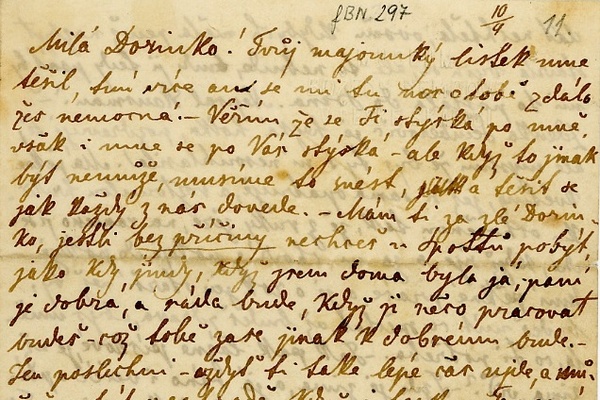 fBN 297 10/9 11.
Milá Dorinko! Tvůj majounký lístek mne
těšil, tím více an se mi tu noc o tobě zdálo
žes nemocná! – Věřím že se Ti stýská po mně,
však i mne se po Vás stýská – ale když to jinak
být nemůže, musíme to snést, a těšit se
jak každý z nás dovede. – Mám ti za zlé Dorin-
ko, jestli bez příčiny nechceš u Špottů pobýt,
jako kdy jindy, když jsem doma byla já; paní
je dobrá, a ráda bude, když jí něco pracovat
budeš – což tobě zase jinak k dobrému bude. –
Jen poslechni – ti také lépe čas ujde, a